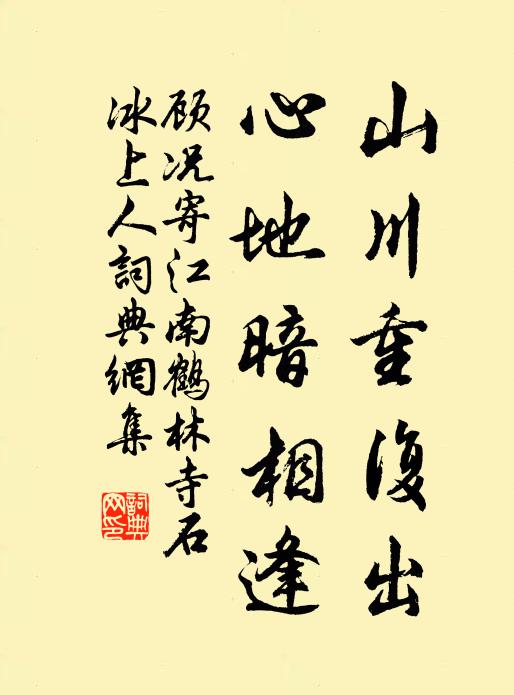 山川重復出
心地暗相逢
顾况寄江南鶴林寺石
冰上人詞典網集
詞典
网印